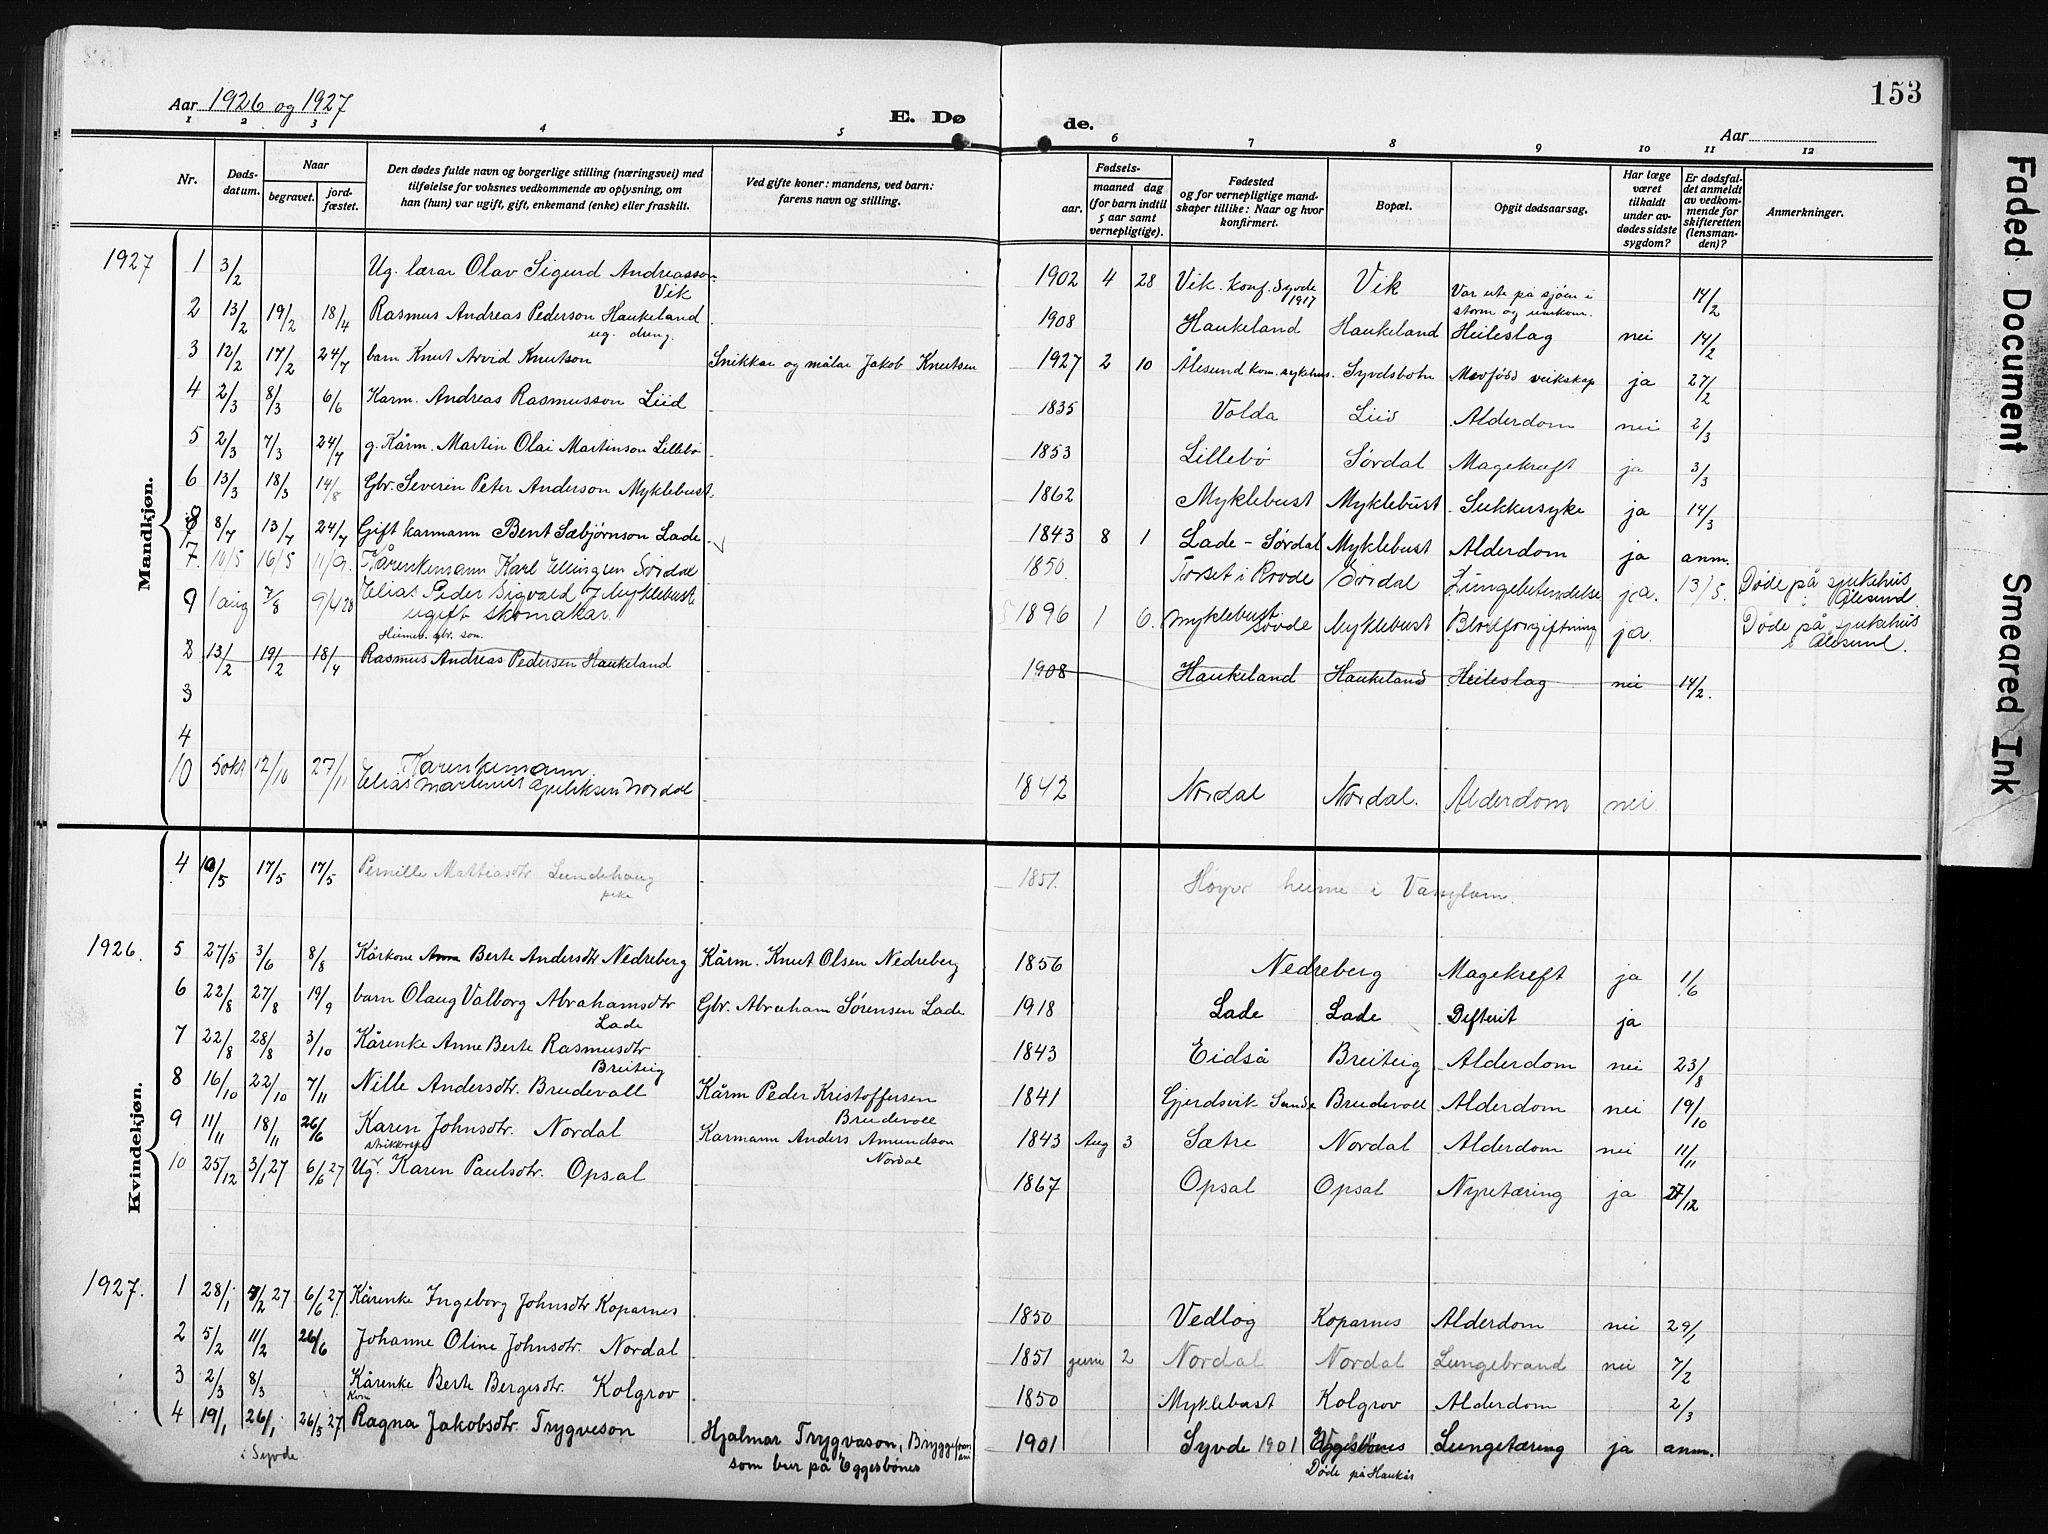 153
Aar 1926 og 1927
E. Døde.
Aar
1 2 3 4 5 6 7 8 9 10 11 12
Nr.
Dødsdatum.
Naar
begravet.
jordfæstet.
Den dødes fulde navn og borgerlige stilling (næringsvei) med
tilføielse for voksnes vedkommende av oplysning, om
han (hun) var ugift, gift, enkemand (enke) eller fraskilt.
Ved gifte koner: mandens, ved barn:
farens navn og stilling.
Fødsels-
aar.
maaned dag
(for barn indtil
5 aar samt
vernepligtige).
Fødested
og for vernepligtige mand-
skaper tillike: Naar og hvor
konfirmert.
Bopæl.
Opgit dødsaarsag.
Har læge
været
tilkaldt
under av-
dødes sidste
sygdom?
Er dødsfal-
det anmeldt
av vedkom-
mende for
skifteretten
(lensman-
den)?
Anmerkninger.
Mandkjøn.
1927 1 3/2 Ug. lærar Olav Sigurd Andreasson Vik 1902 4 28 Vik. Konf. Syvde 1917 Vik Var ute på sjøen i storm og umkom. 14/2
2 13/2 19/2 18/4 Rasmus Andreas Pederson Haukeland ug. dreng. 1908 Haukeland Haukeland Heileslag nei 14/2
3 12/2 17/2 24/7 barn Knut Arvid Knutson Snikkar og målar Jakob Knutsen 1927 2 10 Ålesund kom. sykehus. Syvdsbotn Medfødd veikskap ja 27/2
4 2/3 8/3 6/6 Karm. Andreas Rasmusson Liid 1835 Volda Liid Alderdom nei 2/3
5 2/3 7/3 24/7 g. Kårm. Martin Olai Martinson Lillebø 1853 Lillebø Sørdal Magekreft ja 3/3
6 13/3 18/3 14/8 Gbr. Severin Peter Anderson Myklebust 1862 Myklebust Myklebust Sukkersyke ja 14/3
8 8/7 13/7 24/7 Gift karmann Bent Sæbjørnson Lade 1843 8 1 Lade - Sørdal Myklebust Alderdom ja anm.
7. 10/5 16/5 11/9. Kårenkemann Karl Ellingsen Sørdal 1850. i Rovde Sørdal Lungebetendelse ja. 13/5. Døde på sjukehus i Ålesund.
9 1 aug 7/8 9/4 28 Elias Peder Sigvald Myklebust ugift skomakar. 1896 1 6. Myklebust Rovde Myklebust Blodforgiftning ja. Døde på sjukehus i Ålesund.
2 13/2 19/2 18/4 Heimev. gbr. son. Rasmus Andreas Pedersen Haukeland 1908 Haukeland Haukeland Heileslag nei 14/2.
3
4
10 5 okt 12/10 27/11 Kårenkemann. Elias Martinus Nordal 1842 Nordal Nordal. Alderdom nei
Kvindekjøn.
4 10/5 17/5 17/5 Pernille Mattiasdtr Lundehaug 1851. Høyer heime i Vanylven.
1926. 5 27/5 3/6 8/8 Kårkone Anna Berte Andersdtr Nedreberg Kårm. Knut Olsen Nedreberg 1856 Nedreberg Magekreft ja 1/6
6 22/8 27/8 19/9 barn Olaug Valborg Abrahamsdtr Lade Gbr. Abraham Sørensen Lade 1918 Lade Lade Difterit ja
7 22/8 28/8 3/10 Kårenke Anne Berte Rasmusdtr Breiteig 1843 Eidså Breiteig Alderdom nei 23/8
8 16/10 22/10 7/11 Nille Andersdtr. Brudevoll Kårm Peder Kristoffersen Brudevoll 1841 Gjerdsvik Sande Brudevoll Alderdom nei 19/10
9 11/11 18/11 26/6 Karen Johnsdtr. Nordal Karmann Anders Amundson Nordal 1843 Aug 3 Sætre Nordal Alderdom nei 11/11
10 25/12 3/1 27 6/6 27 Ug. Karen Paulsdtr. Opsal 1867 Opsal Opsal Nyretæring ja 27/12
1927. 1 28/1 27 6/6 27. Kårenke Ingeborg Johnsdtr Koparnes 1850 Vedlog Koparnes Alderdom nei 29/1
2 5/2 11/2 26/6 Johanne Oline Johnsdtr. Nordal 1851 2 Nordal Nordal Lungebrand nei 7/2
3 2/3 8/3 Kårenke Berte Bergesdtr. Kolgrov 1850 Myklebust Kolgrov Alderdom 2/3
4 19/1 26/1 26/5 27 Kone Ragna Jakobsdtr. Trygveson Hjalmar Trygvason, 1901 Syvde 1901 Eggesbønes Lungetæring ja anm.
i Syvde som bur på Eggesbønes Døde på Haukås
Faded Document Smeared Ink